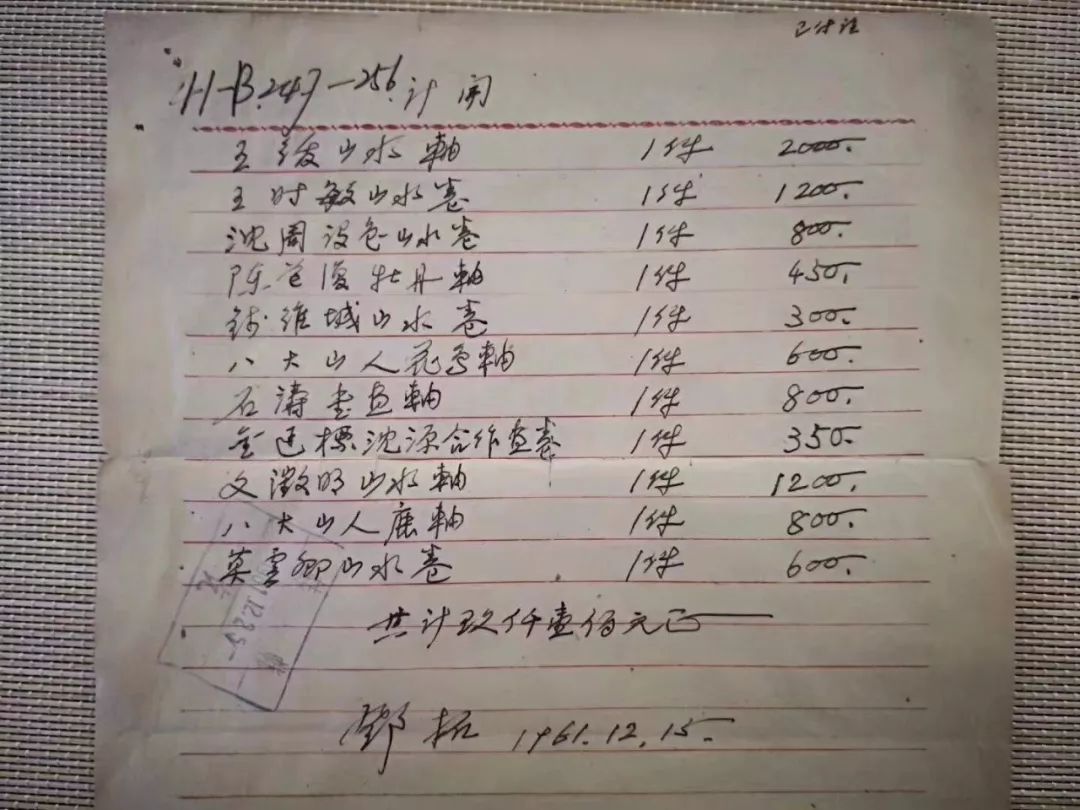 已付注
H-B.247—256.计開
王绂山水軸 1件 2000.
王时敏山水卷 1件 1200.
沈周设色山水卷 1件 800.
陈道復牡丹軸 1件 450.
钱维城山水卷 1件 300.
八大山人花鸟軸 1件 600.
石濤書画軸 1件 800.
金廷標沈源合作画卷 1件 350.
文徵明山水軸 1件 1200.
八大山人鹿軸 1件 800.
莫雲卿山水卷 1件 600.
共计玖仟壹佰元正
1961.12.25
鄧拓 1961.12.15.